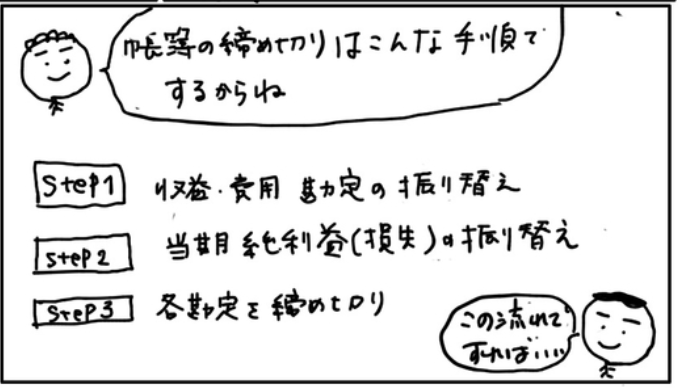 帳簿の締め切りはこんな手順で
するからね
Step1 収益・費用 勘定の振り替え
Step2 当期純利益(損失)の振り替え
Step3 各勘定を締め切り
この流れで
すれば‥‥